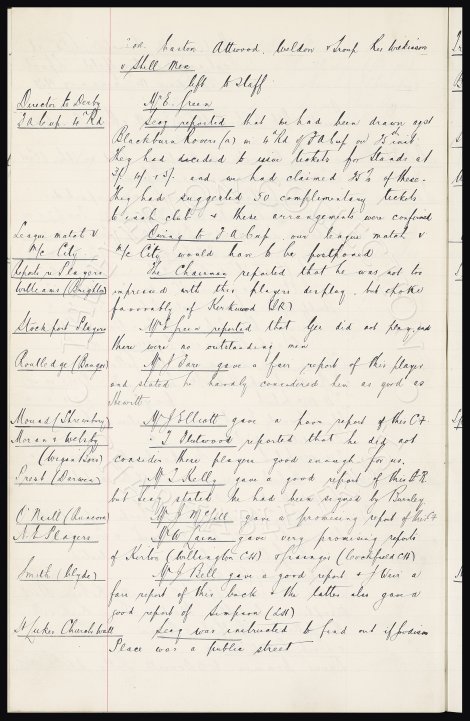 Easton Attwood, Weldon & Troup Res Wilkinson
& Still Mee
left to Staff
Director to Derby
Mr E. Green
F A Cup. 4th Rd
Secy reported that we had been drawn agst
Blackburn Rovers (a) in 4th Rd of F A Cup on 25th inst
They had decided to issue tickets for Stands at
and we had claimed 25% of these.
They had suggested 50 complimentary tickets
to each club & these arrangements were confirmed
League match v
Owing to F A Cup, our league match v
M/c City
M/c City would have to be postponed
Reports re Players
The Chairman reported that he was not too
Williams (Brighton)
impressed with this players display, but spoke
favourably of Kirkwood (LR)
Stockport Players
Mr E Green reported that Gee did not play, and
there were no outstanding men
Routledge (Bangor)
Mr J Fare gave a fair report of this player
and stated he hardly considered him as good as
Hewitt
Mound (Shrewsbury)
Mr J Elliott gave a poor report of this CF
Moran & Welsby
J Fleetwood reported that he did not
(Wigan Boro)
consider these players good enough for us.
Frost (Darwen)
Mr T Kelly gave a good report of this
but Secy stated he had been signed by Burnley
O'Neill (Runcorn)
Mr J McGill gave a promising report of this
N.E. Players
Mr W gave very promising reports
of Kirton (Willington CH) & Grainger (Cockfield CH)
Smith (Clyde)
Mr J Bell gave a good report & J Weir a
fair report of this back & the latter also gave a
good report of Simpson (LH)
St Lukes Church Wall
Secy was instructed to find out if Goodison
Place was a public street